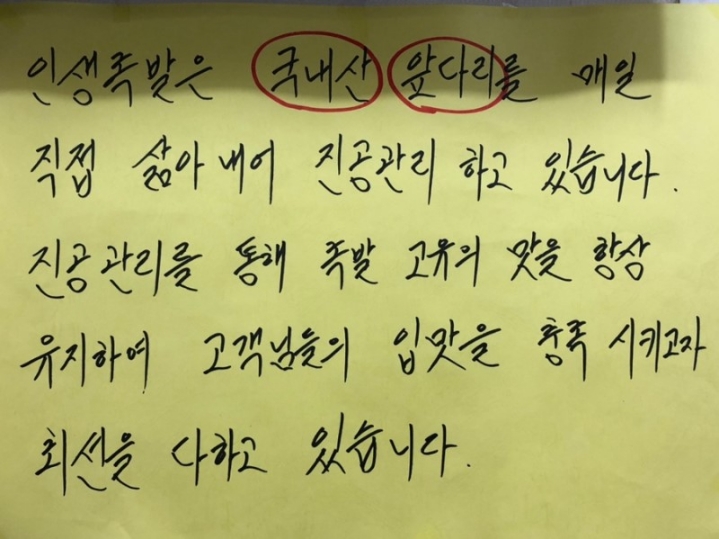 인생족발은 국내산 앞다리를 매일
직접 삶아내어 진공관리 하고 있습니다.
진공관리를 통해 족발 고유의 맛을 항상
유지하여 고객님들의 입맛을 충족 시키고자
최선을 다하고 있습니다.